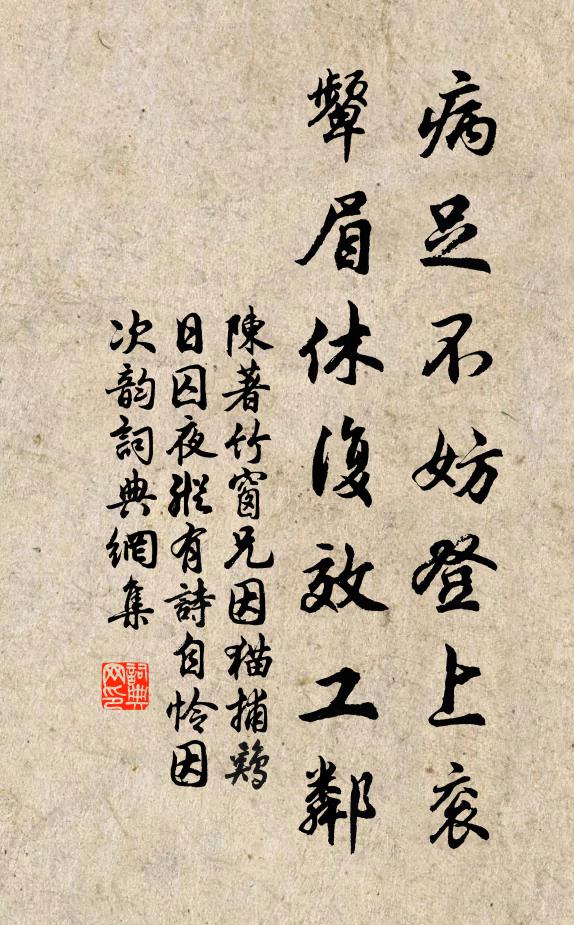 病足不妨登上衮
顰眉休復效工鄰
陳著竹窗兄因猫捕鶏
日囚夜縱有詩自怜因
次韵詞典網集
詞典
网印